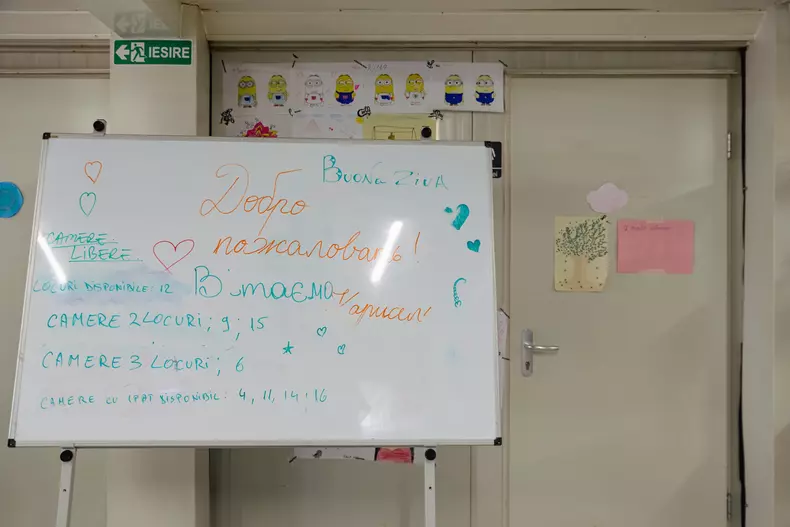 IESIRE
BUONA ZIUA
Добро
пожаловать!
CAMERE
LIBERE
LOCURI DISPONINLE: 12
Вітаємо
CAMERE 2 LOCURI; 9; 15
CAMERE 3 LOCURI; 6
CAMERE CU 1 PAT DISPONIBIL: 4, 11, 14, 16